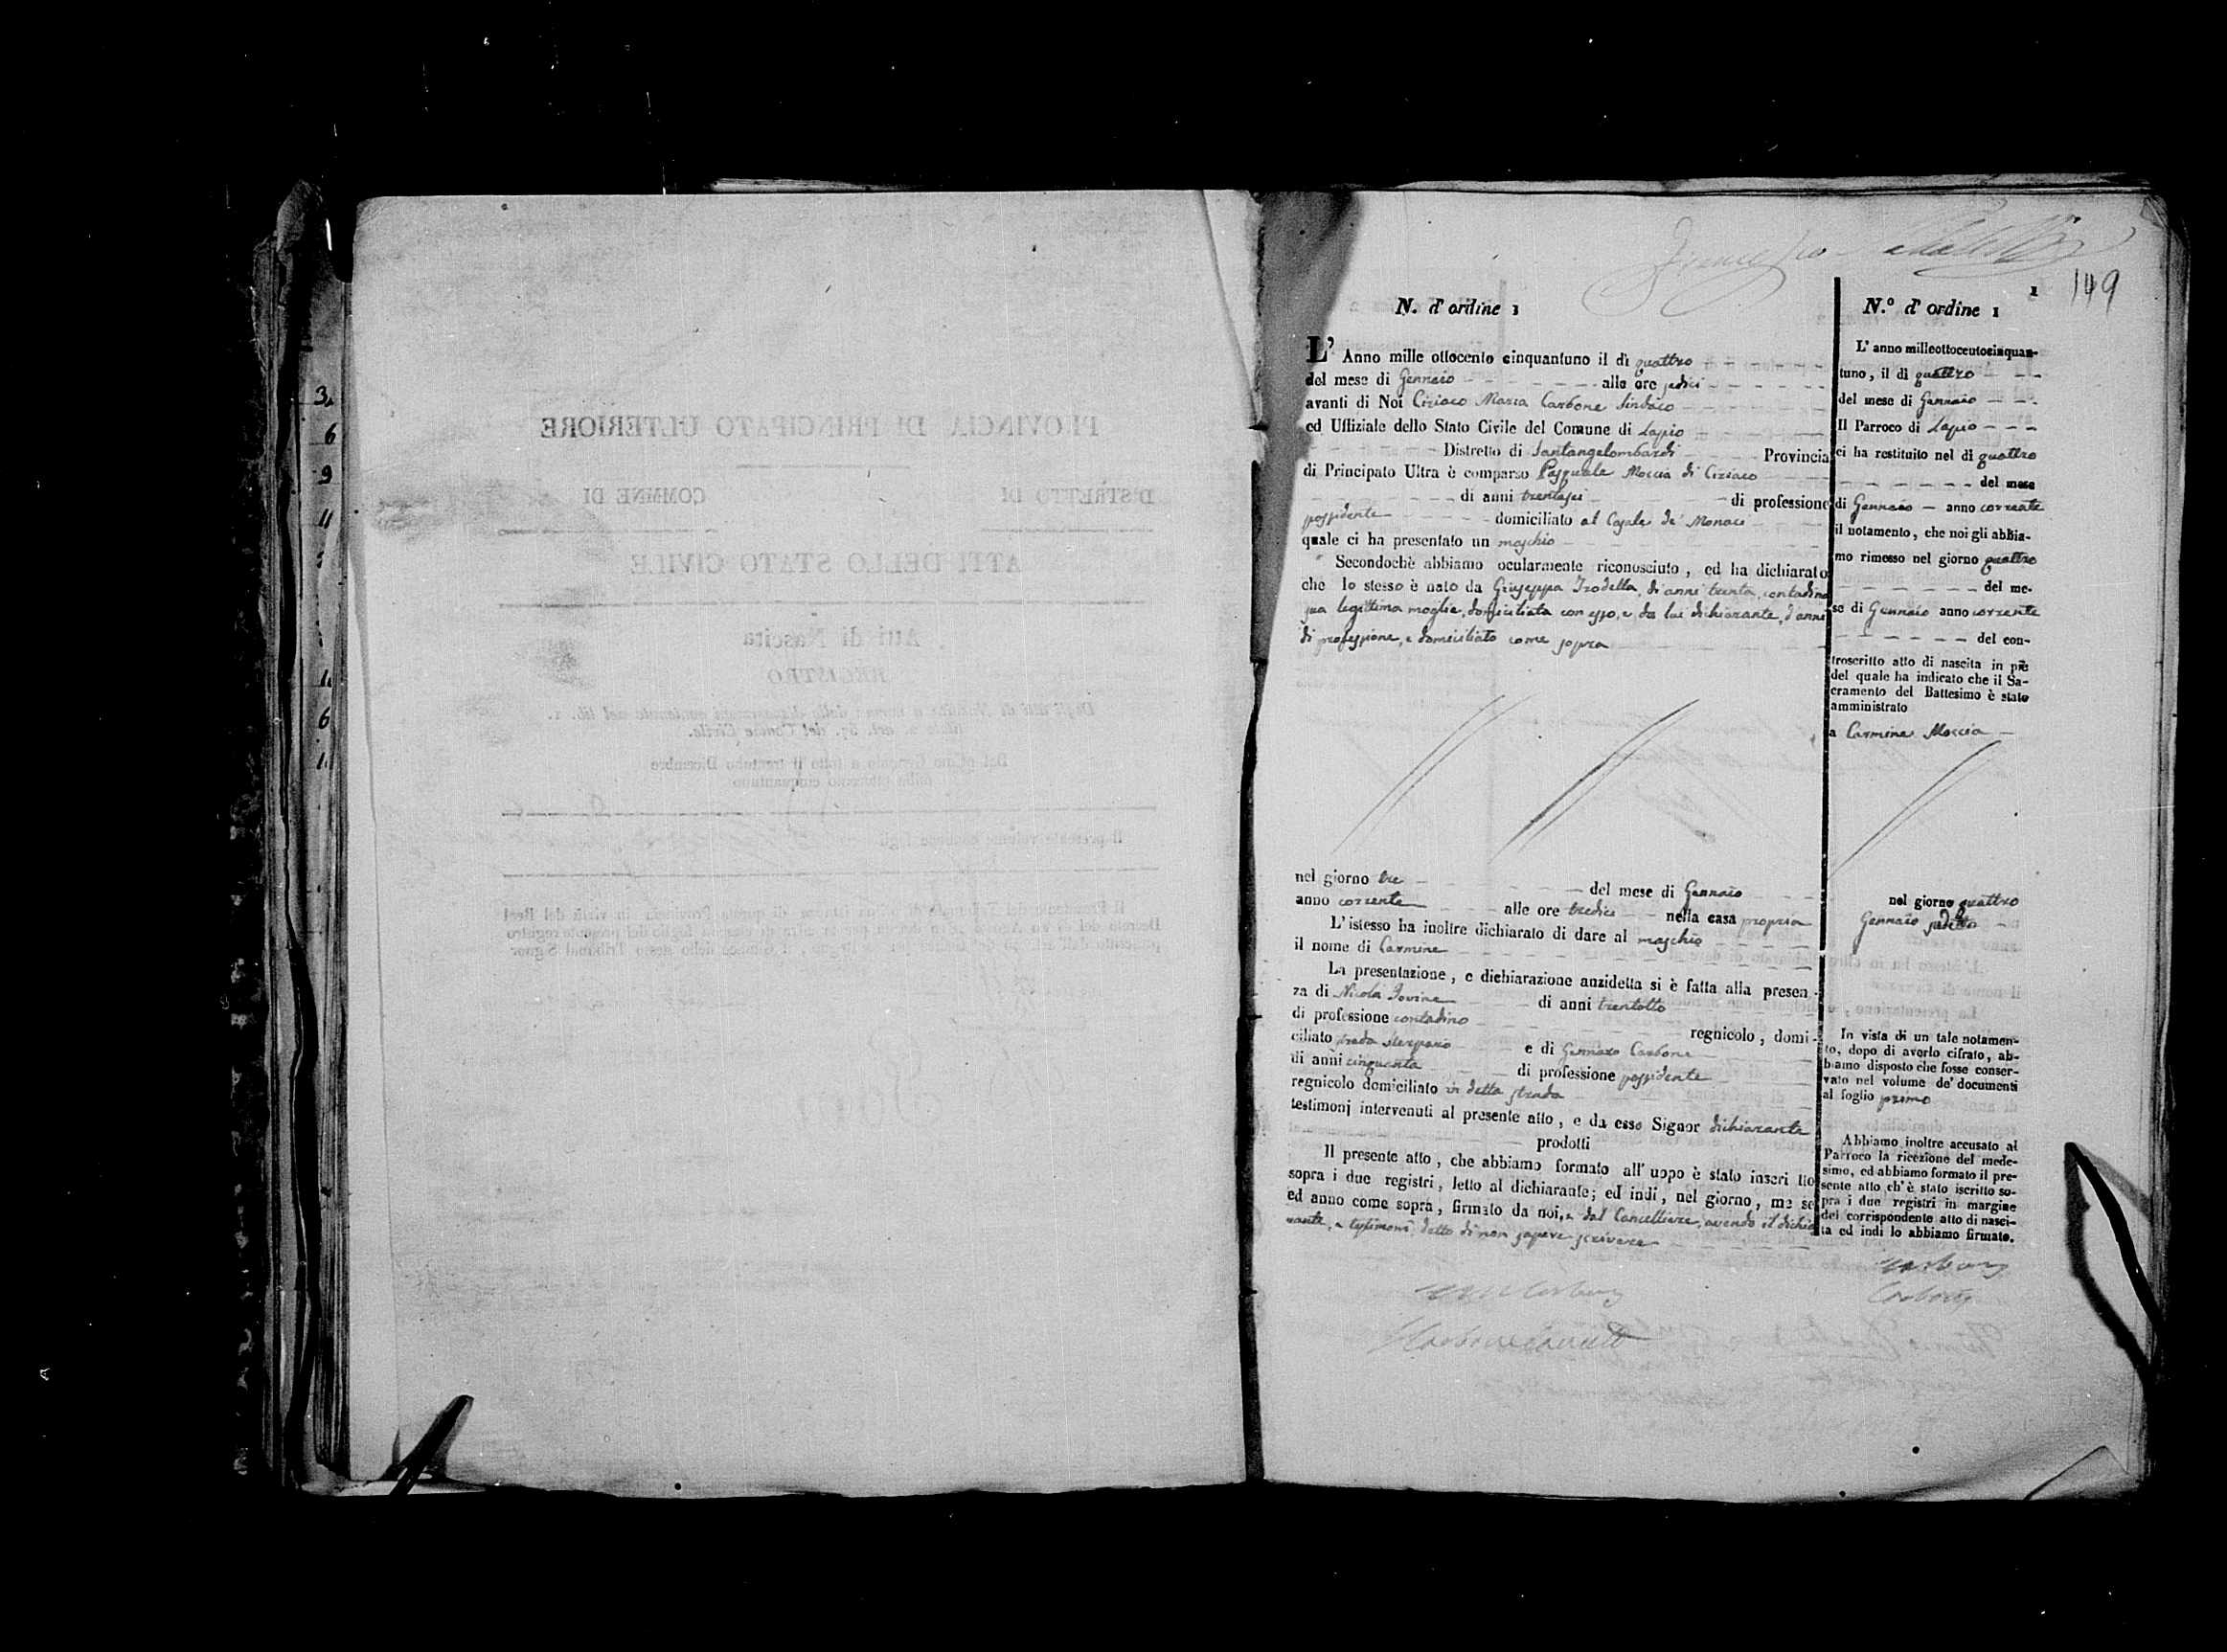 3
6
9
11
6
149
1
N. d'ordine 1
L' Anno mille ottocento cinquantuno il dì quattro
del mese di Gennaio alle ore sedici
avanti di Noi Ciriaco Maria Carbone Sindaco
ed Uffiziale dello Stato Civile del Comune di Lapio
Distretto di Santangelombardi Provincia
di Principato Ultra è comparso Pasquale Moccia di Ciriaco
di anni trentasei di professione
possidente domiciliato al Casale de' Monaci
quale ci ha presentato un maschio
Secondochè abbiamo ocularmente riconosciuto, ed ha dichiarato
che lo stesso è nato da Giuseppa Trodella, di anni trenta, contadina
sua legittima moglie, domiciliata con esso, e da lui dichiarante, d'anni
di professione, e domiciliato come sopra
nel giorno tre del mese di Gennaio
anno corrente alle ore tredici nella casa propria
L'istesso ha inoltre dichiarato di dare al maschio
il nome di Carmine
La presentazione, e dichiarazione anzidetta si è fatta alla presen-
za di Nicola Iovine di anni trentotto
di professione contadino regnicolo, domi-
ciliato strada e di Gennaro Carbone
di anni cinquanta di professione possidente
regnicolo domiciliato in detta strada
testimonj intervenuti al presente atto, e da esso Signor dichiarante
prodotti
Il presente atto, che abbiamo formato all'uopo è stato inscri tto
sopra i due registri, letto al dichiarante; ed indi, nel giorno, me se
ed anno come sopra, firmato da noi, e dal Cancelliere, avendo il dichia
rante, e testimoni detto di non sapere scrivere
N.º d'ordine 1
L' anno milleottocentocinquan-
tuno, il di quattro
del mese di Gennaio
Il Parroco di Lapio
ci ha restituito nel dì quattro
del mese
di Gennaio anno corrente
il notamento, che noi gli abbia-
mo rimesso nel giorno quattro
del me-
se di Gennaio anno corrente
del con-
troscritto atto di nascita in piè
del quale ha indicato che il Sa-
cramento del Battesimo è stato
amministrato
a Carmine Moccia
nel giorno quattro
Gennaio detto
In vista di un tale notamen-
to, dopo di averlo cifrato, ab-
biamo disposto che fosse conser-
vato nel volume de' documenti
al foglio primo
Abbiamo inoltre accusato al
Parroco la ricezione del mede-
simo, ed abbiamo formato il pre-
sente atto ch'è stato iscritto so-
pra i due registri in margine
del corrispondente atto di nasci-
ta ed indi lo abbiamo firmato.